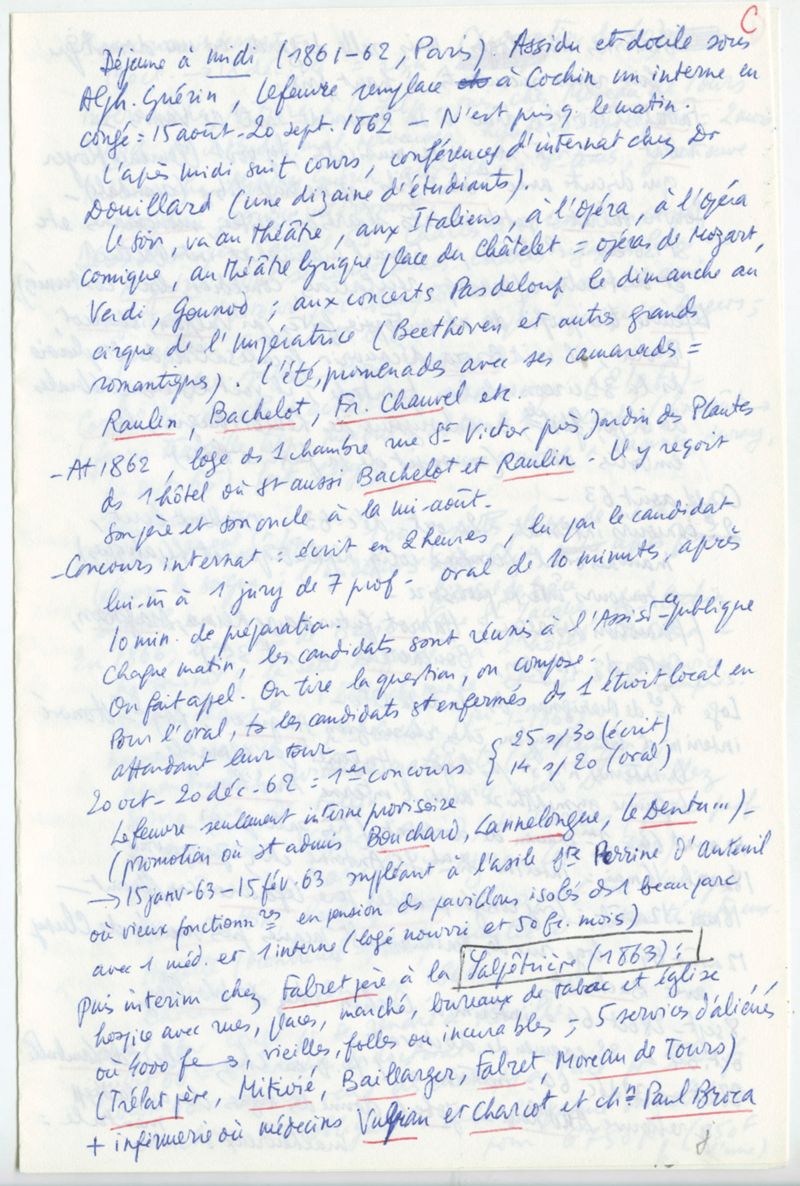 C
Déjeune à midi (1861-62, Paris). Assidu et docile sous
Alph. Guérin, Lefeuvre remplace à Cochin un interne en
congé = 15 août - 20 sept. 1862 — N'est pris q. le matin.
L'après midi suit cours, conférences d'internat chez Dr
Douillard (une dizaine d'étudiants).
Le soir, va au théâtre, aux Italiens, à l'opéra, à l'opéra
comique, au théâtre lyrique place du Châtelet = opéras de Mozart,
Verdi, Gounod ; aux concerts Pasdeloup le dimanche au
cirque de l'Impératrice (Beethoven et autres grands
romantiques). L'été, promenades avec ses camarades =
Raulin, Bachelot, Fr. Chauvel etc.
- At 1862, logé ds 1 chambre rue St Victor près Jardin des Plantes
ds 1 hôtel où st aussi Bachelot et Raulin = Il y reçoit
son père et son oncle à la mi-août.
- Concours internat = écrit en 2 heures, lu par le candidat
lui-m̂ à 1 jury de 7 prof - oral de 10 minutes, après
10 min. de préparation.
Chaque matin, les candidats sont réunis à l'Assistce publique
On fait appel. On tire la question, on compose.
Pour l'oral, ts les candidats st enfermés ds 1 étroit local en
attendant leur tour -
20 oct - 20 déc - 62 = 1er concours { 25 s/30 (écrit)
14 s/20 (oral)
Lefeuvre seulement interne provisoire
(promotion où st admis Bouchard, Lannelongue, Le Dentu...) -
→ 15 janv-63 - 15 fév-63 suppléant à l'asile Ste Perrine d'Auteuil
où vieux fonctionnres en pension ds pavillons isolés ds 1 beau parc
avec 1 méd. et 1 interne (logé nourri et 50 fr. mois)
Puis interim chez Falret père à la Salpêtrière (1863) :
hospice avec rues, places, marché, bureaux de tabac et église
où 4000 fe—s, vieilles, folles ou incurables ; 5 services d'aliénés
(Trélat père, Mitivié, Baillarger, Falret, Moreau de Tours)
+ infirmerie où médecins Vulpian et Charcot et chin Paul Broca